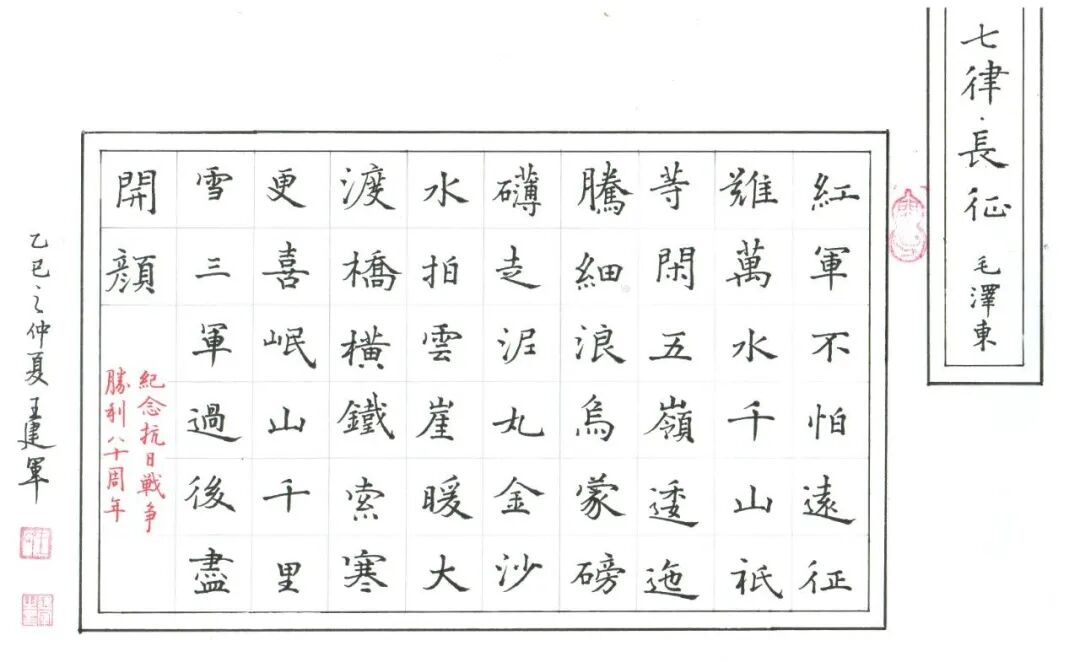 七律·長征 毛澤東
紅軍不怕遠征
難萬水千山祇
等閑五嶺逶迤
騰細浪烏蒙磅
礴走泥丸金沙
水拍雲崖暖大
渡橋橫鐵索寒
更喜岷山千里
雪三軍過後盡
開顔
紀念抗日戰争
勝利八十周年
乙巳之仲夏 王建軍